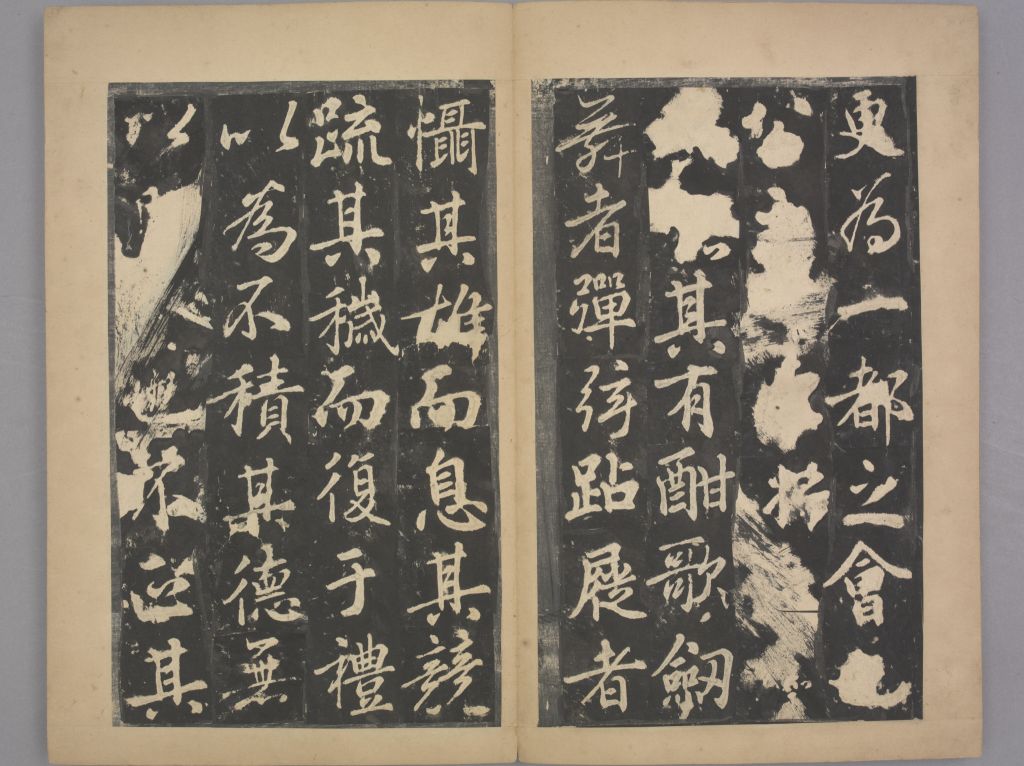 更為一都之會也
公
以其有酣歌劔
舞者彈弦跕屣者
懾其雄而息其諺
疏其穢而復于禮
以為不積其德無
以人也不其